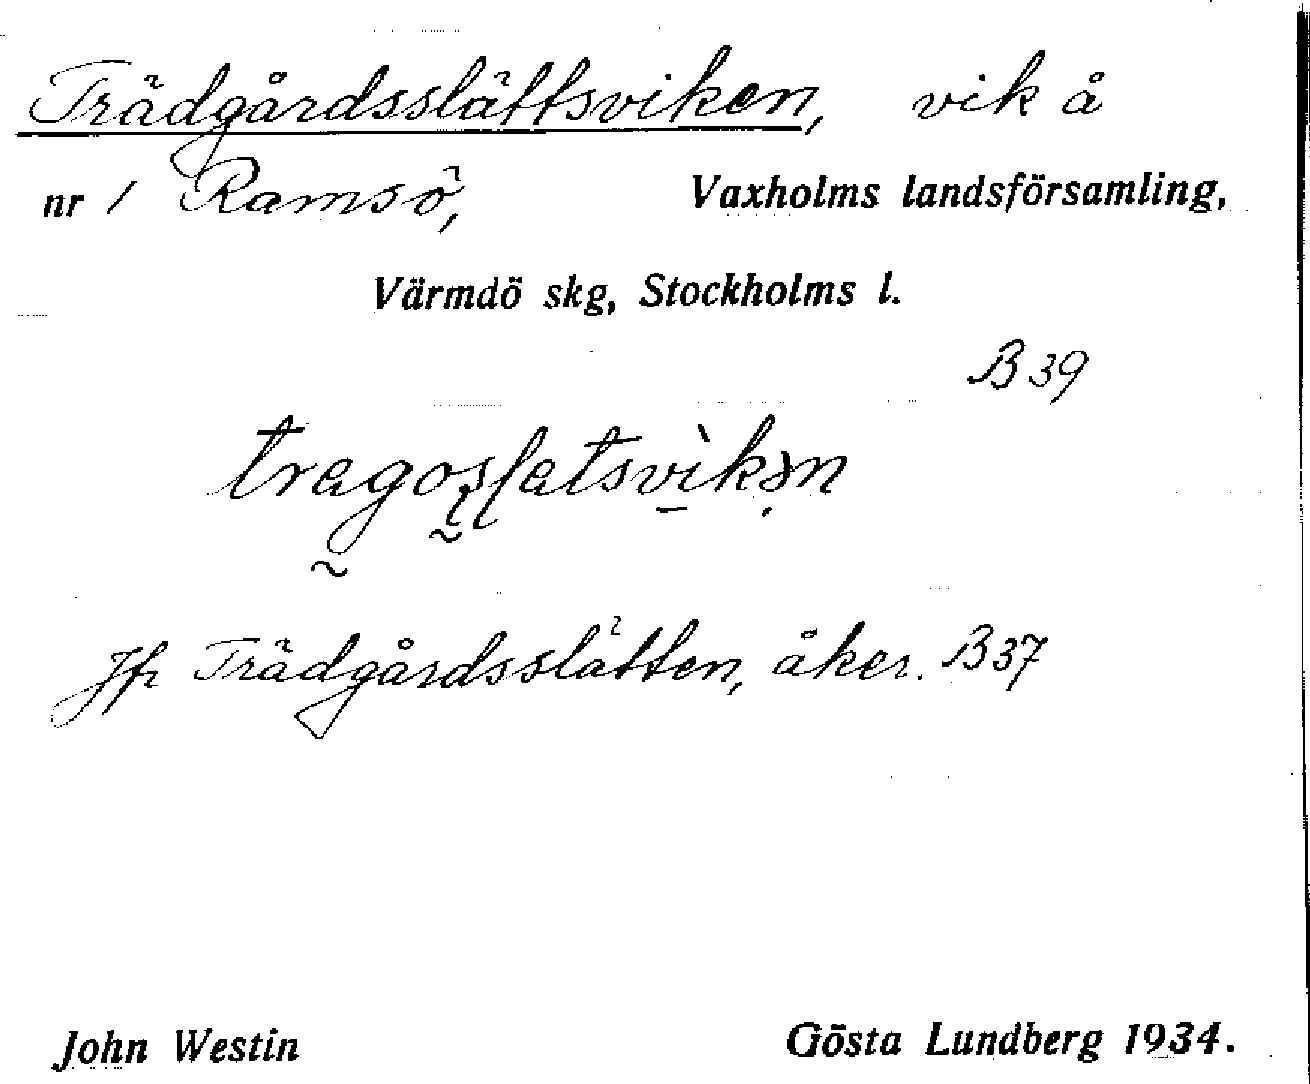 Trädgårdsslättsviken, vik å
nr 1 Ramsö, Vaxholms landsförsamling,
Värmdö skg, Stockholms l.
B 39
Jfr Trädgårdsslätten, åker. B 37
John Westin Gösta Lundberg 1934.